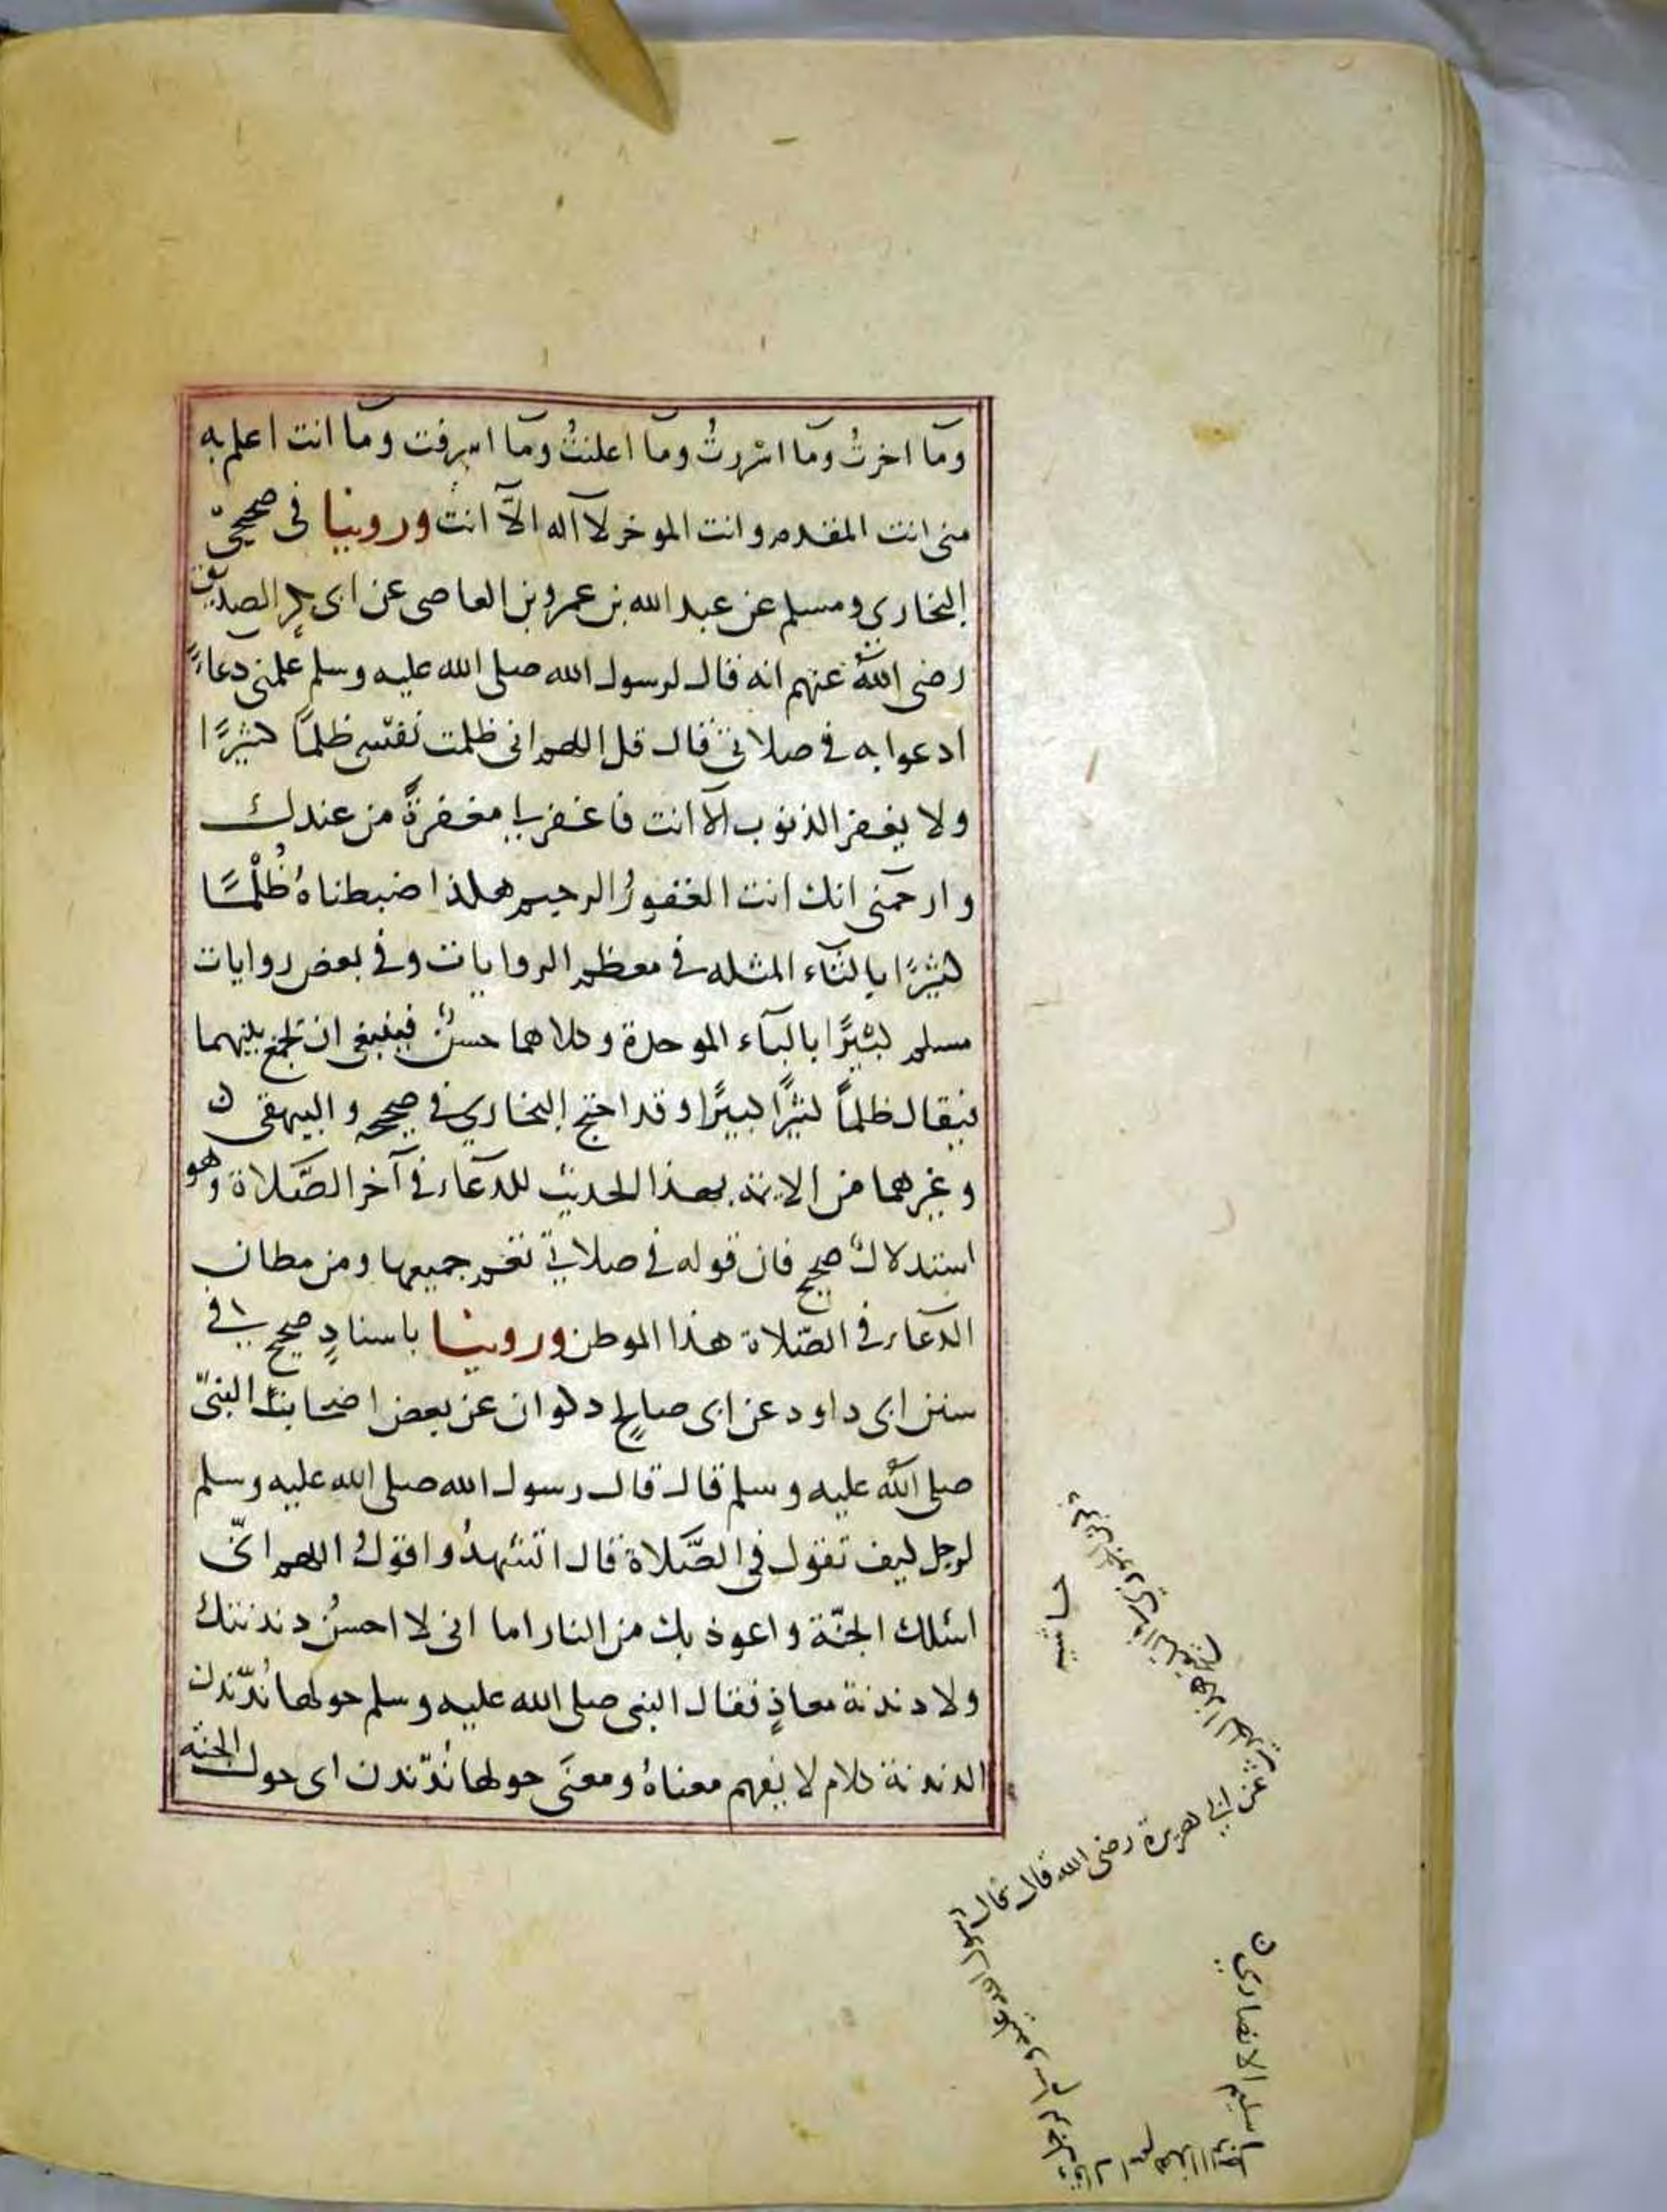 وما اخرتُ وما اسْررتُ وما اعلنتُ وما اسرفت وما انت اعلم به
منى انت المقدم وانت الموخر لا آله الاّ انت وروينا فى صحيحىّ
البخاري ومسلم عن عبد الله بن عمرو بن العاصى عن ابى بكر الصديق
رضى اللهُ عنهم انه قال لرسول الله صلى الله عليه وسلم علمنى دعاءً
ادعوا به في صلاتي قال قل اللهم انى ظلمت نفسي ظلمًا كثيرًا
ولا يغفر الذنوب الا انت فاغفر لي مغفرةً من عندك
وارحمنى انك انت الغفورُ الرحيم هكذا ضبطناهُ ظُلْمًا
كثيرًا بالثاء المثلثه في معظم الروايات وفي بعض روايات
مسلم كبيرًا بالباء الموحدة وكلاهما حسنٌ فينبغى ان تجمع بينهما
فيقال ظلمًا كثيرًا كبيرًا وقد احتج البخاري في صحيحه والبيهقى
وغيرهما من الائمة بهذا الحديث للدعاء في آخر الصّلاة وهو
استدلالٌ صحيح فان قوله في صلاتي تعم جميعها ومن مظان
الدعاء في الصّلاة هذا الموطن وروينا باسنادٍ صحيح في
سنن ابى داود عن ابى صالحٍ ذكوان عن بعض اصحاب النبىّ
صلى الله عليه وسلم قال قال رسول الله صلى الله عليه وسلم
لرجل كيف تقول في الصَّلاة قال اتشهدُ واقولُ اللهم انّى
اسئلك الجنّة واعوذ بك من النار اما انى لا احسنُ دندنتك
ولا دندنة معاذٍ فقال النبى صلى الله عليه وسلم حولها نُدّندن
الدندنة كلام لا يفهم معناهُ ومعنَى حولها نُدّندن اى حول الجنة
حاشيه
عن ابي هريرة رضى الله قال قال
سليم الانصاري